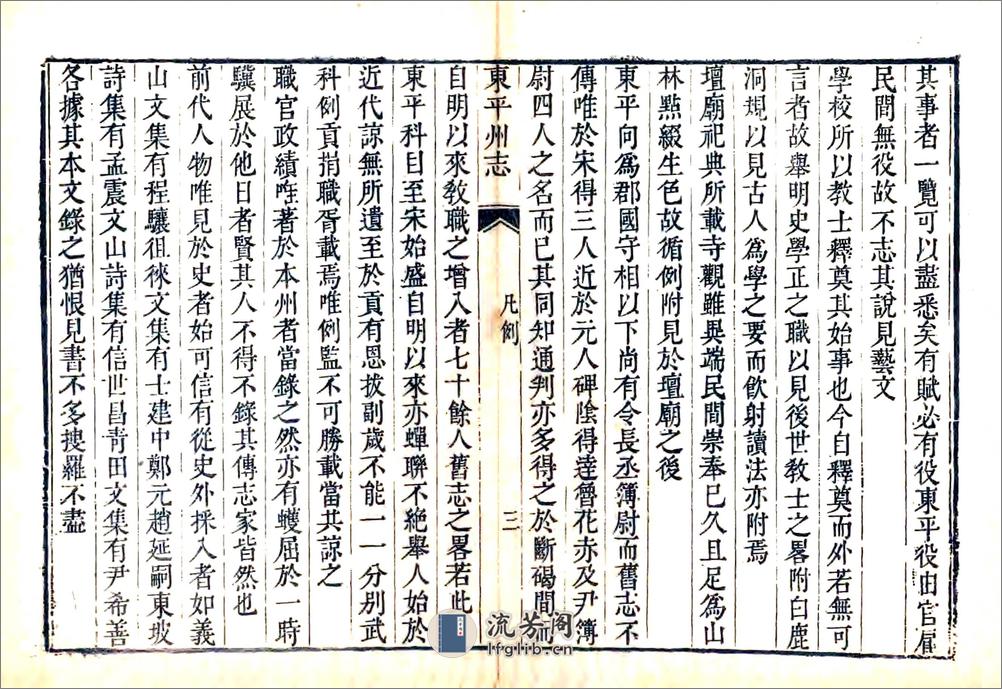 其事者一覽可以盡悉矣有賦必有役東平役由官雇
民間無役故不志其說見藝文
學校所以教士釋奠其始事也今自釋奠而外若無可
言者故舉明史學正之職以見後世教士之畧附白鹿
洞規以見古人爲學之要而飲射讀法亦附焉
壇廟祀典所載寺觀雖異端民間崇奉已久且足爲山
林點綴生色故循例附見於壇廟之後
東平向爲郡國守相以下尚有令長丞簿尉而舊志不
傳唯於宋得三人近於元人碑陰得達魯花赤及尹簿
尉四人之名而已其同知通判亦多得之於斷碣間而
東平州志
凡例
三
自明以來教職之增入者七十餘人舊志之畧若此
東平科目至宋始盛自明以來亦蟬聯不絕舉人始於
近代諒無所遺至於貢有恩拔副歲不能一一分別武
科例貢捐職胥載焉唯例監不可勝載當共諒之
職官政績唯著於本州者當錄之然亦有蠖屈於一時
驥展於他日者賢其人不得不錄其傳志家皆然也
前代人物唯見於史者始可信有從史外採入者如義
山文集有程驤徂徠文集有士建中鄭元趙延嗣東坡
詩集有孟震文山詩集有信世昌青田文集有尹希善
各據其本文錄之猶恨見書不多搜羅不盡
流芳阁
lfglib.cn